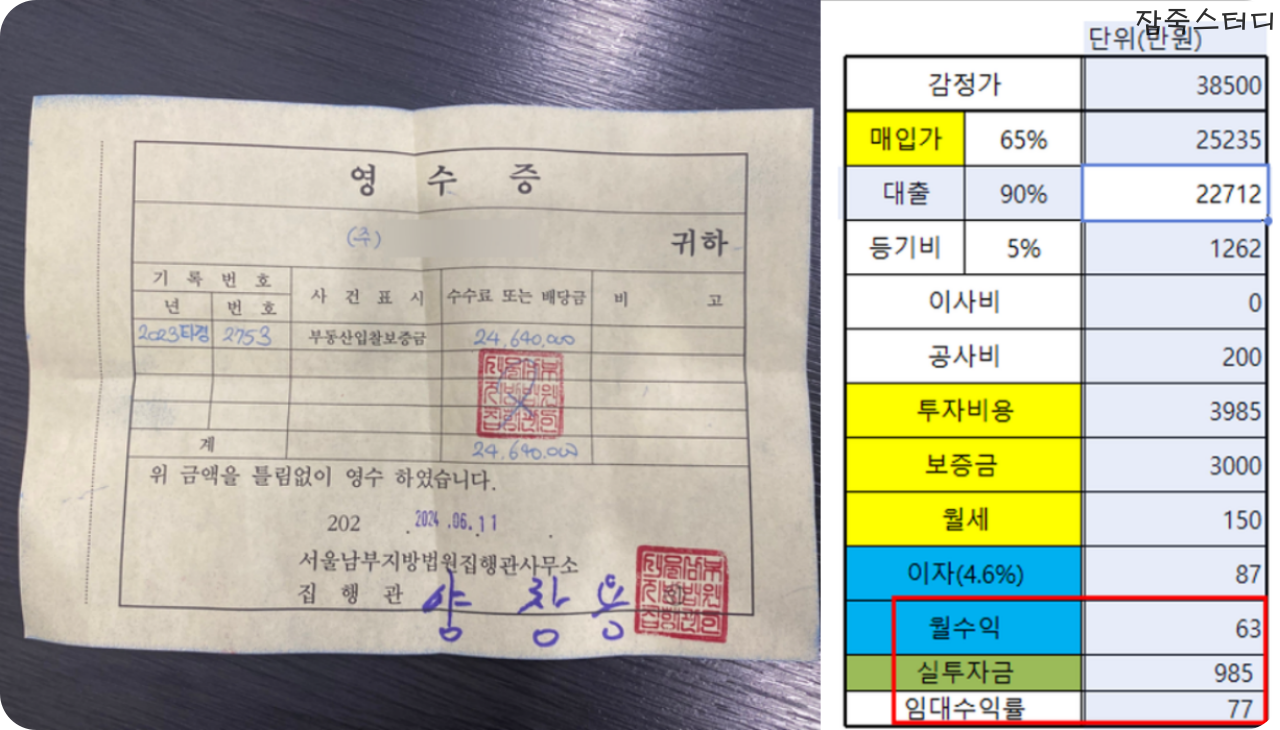 영 수 증
(주)
귀하
기 록 번 호
년 번 호 사 건 표 시 수수료 또는 배당금 비 고
2023타경 2753 부동산입찰보증금 24,640,000
계 24,640,000
위 금액을 틀림없이 영수 하였습니다.
202 . 2024.06.11 .
서울남부지방법원집행관사무소
집 행 관 양 창 용
잡죽스터디
단위(만원)
감정가 38500
매입가 65% 25235
대출 90% 22712
등기비 5% 1262
이사비 0
공사비 200
투자비용 3985
보증금 3000
월세 150
이자(4.6%) 87
월수익 63
실투자금 985
임대수익률 77